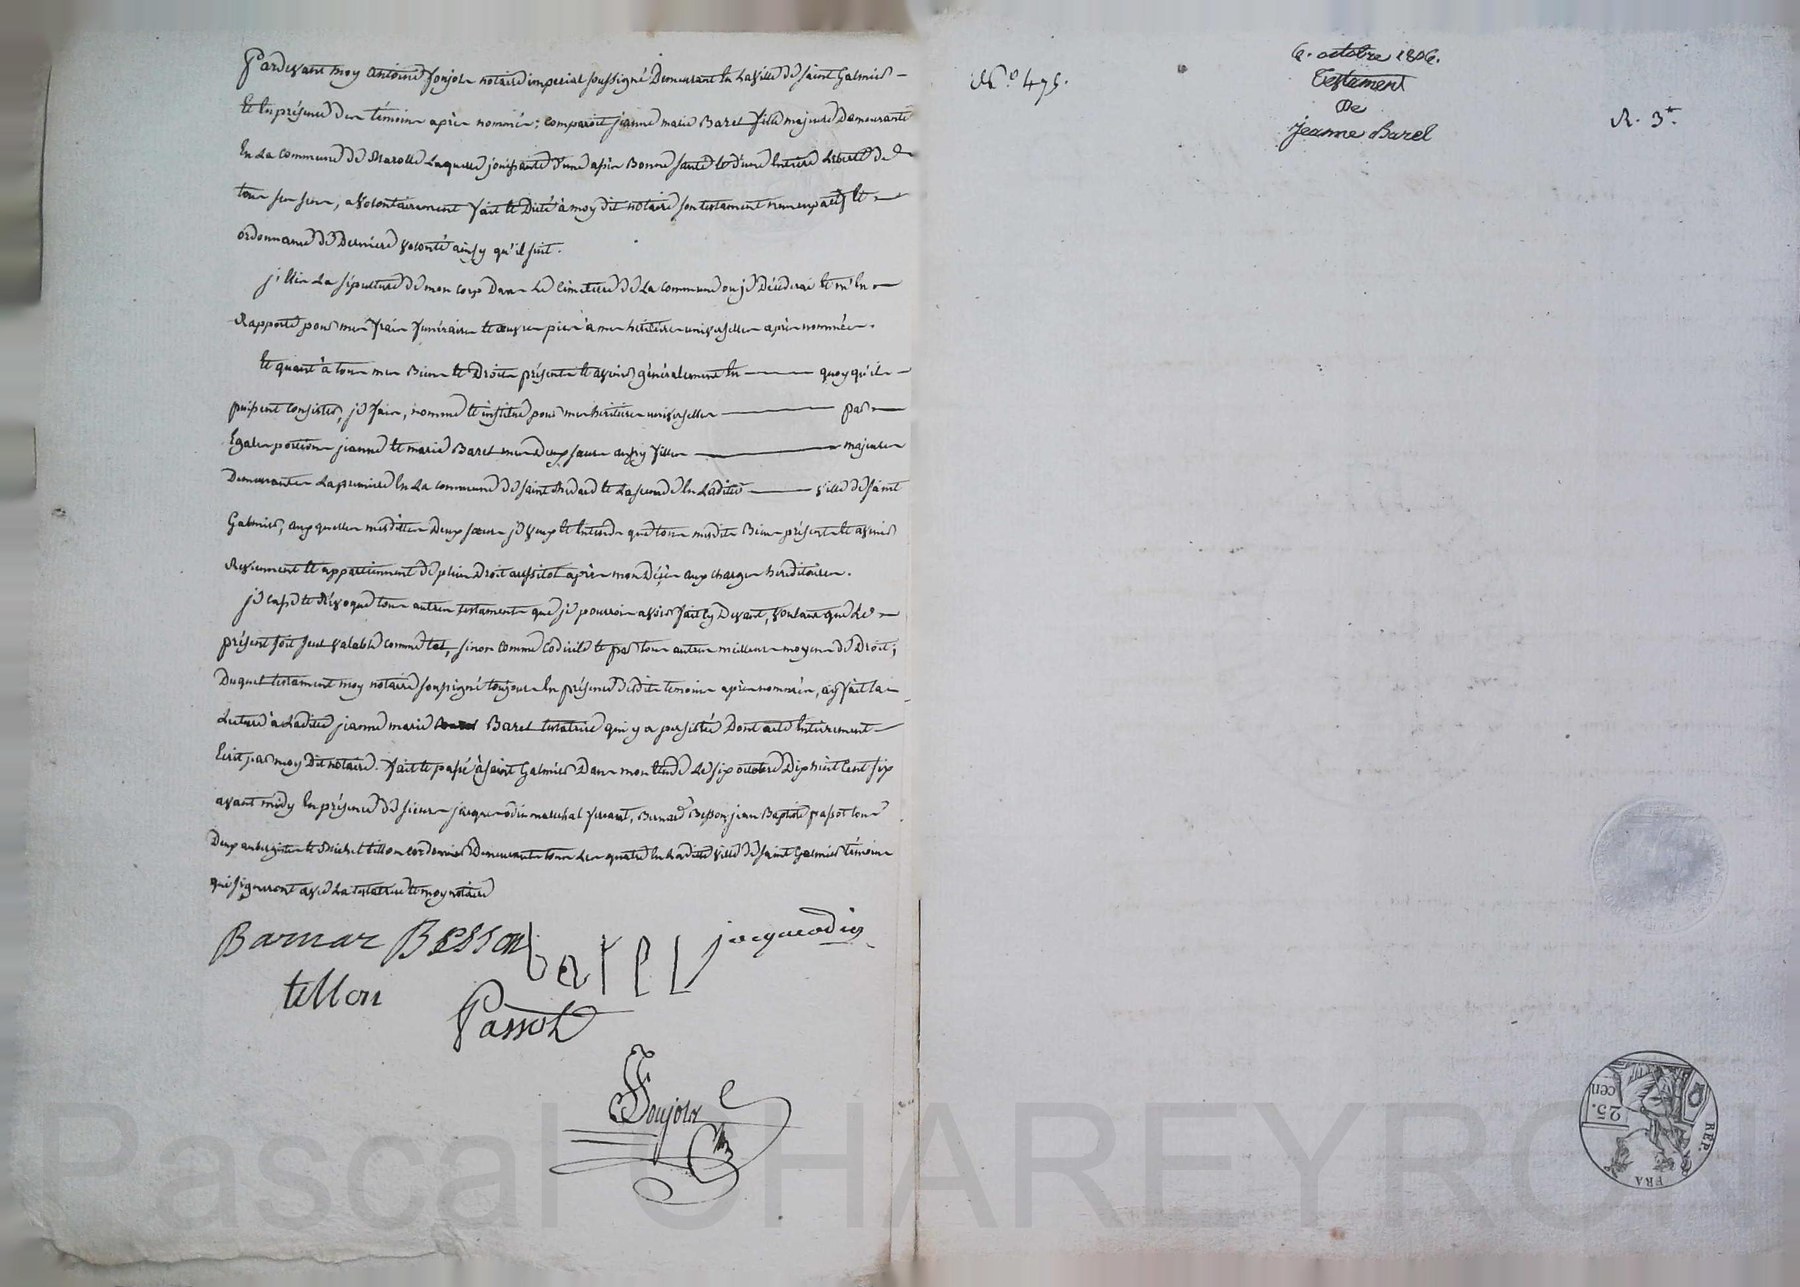 Pardevant moy Antoine Joujole notaire imperial soussigné Demeurant En La ville de saint Galmier
Et En présence des témoins après nommés; comparoit jeanne marie Barel fille majeure Demeurante
En La Commune de Laquelle jouissante d'une assés Bonne santé et d'une Entière Liberté de
tous ses sens, a volontairement fait et Dicté à moy dit notaire son testament nuncupatif et
ordonnance de Dernière volonté ainsy qu'il suit.
j'Elis La sépulture de mon corps Dans Le Cimetière de La commune ou je Décéderai et m'En
Rapporte pour mes frais funéraires et œuvres pies à mes héritières universelles après nommées.
Et quant à tous mes Biens et Droits présents et avenir généralement En quoy qu'ils
puissent Consister, je fais, nomme et institue pour mes héritières universelles par
Egales portions jeanne et marie Barel mes Deux sœurs aussy filles majeures
Demeurantes La première En La commune de saint Medard et La seconde En Ladite ville de saint
Galmier, auxquelles mesdittes Deux sœurs je veux et Entends que tous mesdits Biens présents et avenir
Reviennent et appartiennent de plein Droit aussitot après mon Décès aux charges héréditaires.
je casse et Révoque tous autres testaments que je pourrois avoir fait cy Devant, voulant que Le
présent soit seul valable comme tel, sinon comme Codicile et par tous autres meilleurs moyens de Droit;
Duquel testament moy notaire soussigné toujours En présence desdits témoins après nommés, ay fait La
Lecture à Ladite jeanne marie Barel testatrice qui y a persisté Dont acte Entièrement
Ecrit par moy Dit notaire. fait et passé à saint Galmier Dans mon Etude Le six octobre Dix huit Cent six
avant midy En présence de sieurs jacques odin marechal ferrant, Bernard Besson, jean Baptiste passot tous
Deux aubergistes et Michel tillon cordonnier Demeurants tous Les quatre En Ladite ville de saint Galmier témoins
qui signeront avec La testatrice et moy notaire
Barnar Besson barel jacque odin
tellon
Passot
Joujole
6. octobre 1806.
N.º 475.
Testament
De
Jeanne Barel
R. 3
25. cen
REP. FRA
Pascal CHAREYRON